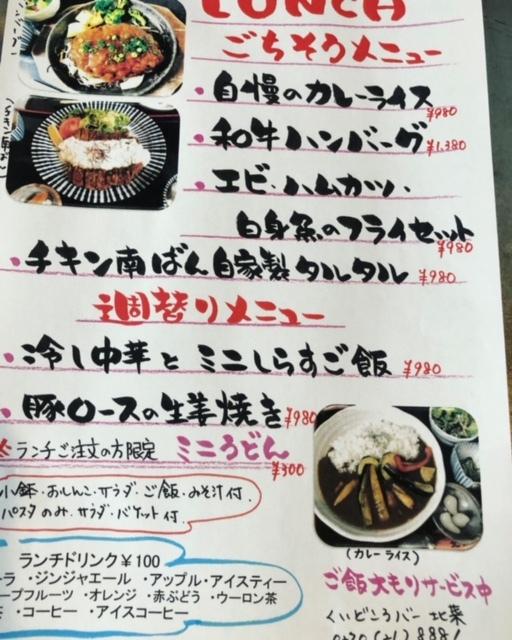 LUNCH
ごちそうメニュー
・自慢のカレーライス ¥980
・和牛ハンバーグ ¥1,380
・エビ・ハムカツ・
白身魚のフライセット ¥980
・チキン南ばん自家製タルタル ¥980
週替りメニュー
・冷し中華とミニしらすご飯 ¥980
・豚ロースの生姜焼き ¥980
ランチご注文の方限定 ミニうどん ¥300
小鉢・おしんこ・サラダ・ご飯・みそ汁付.
パスタのみ.サラダ・バケット付.
ランチドリンク¥100
ーラ ・ジンジャエール ・アップル・アイスティー
ープフルーツ ・オレンジ ・赤ぶどう ・ウーロン茶
茶 ・コーヒー ・アイスコーヒー
(カレーライス)
ご飯大もりサービス中
くいどころバー 北菜